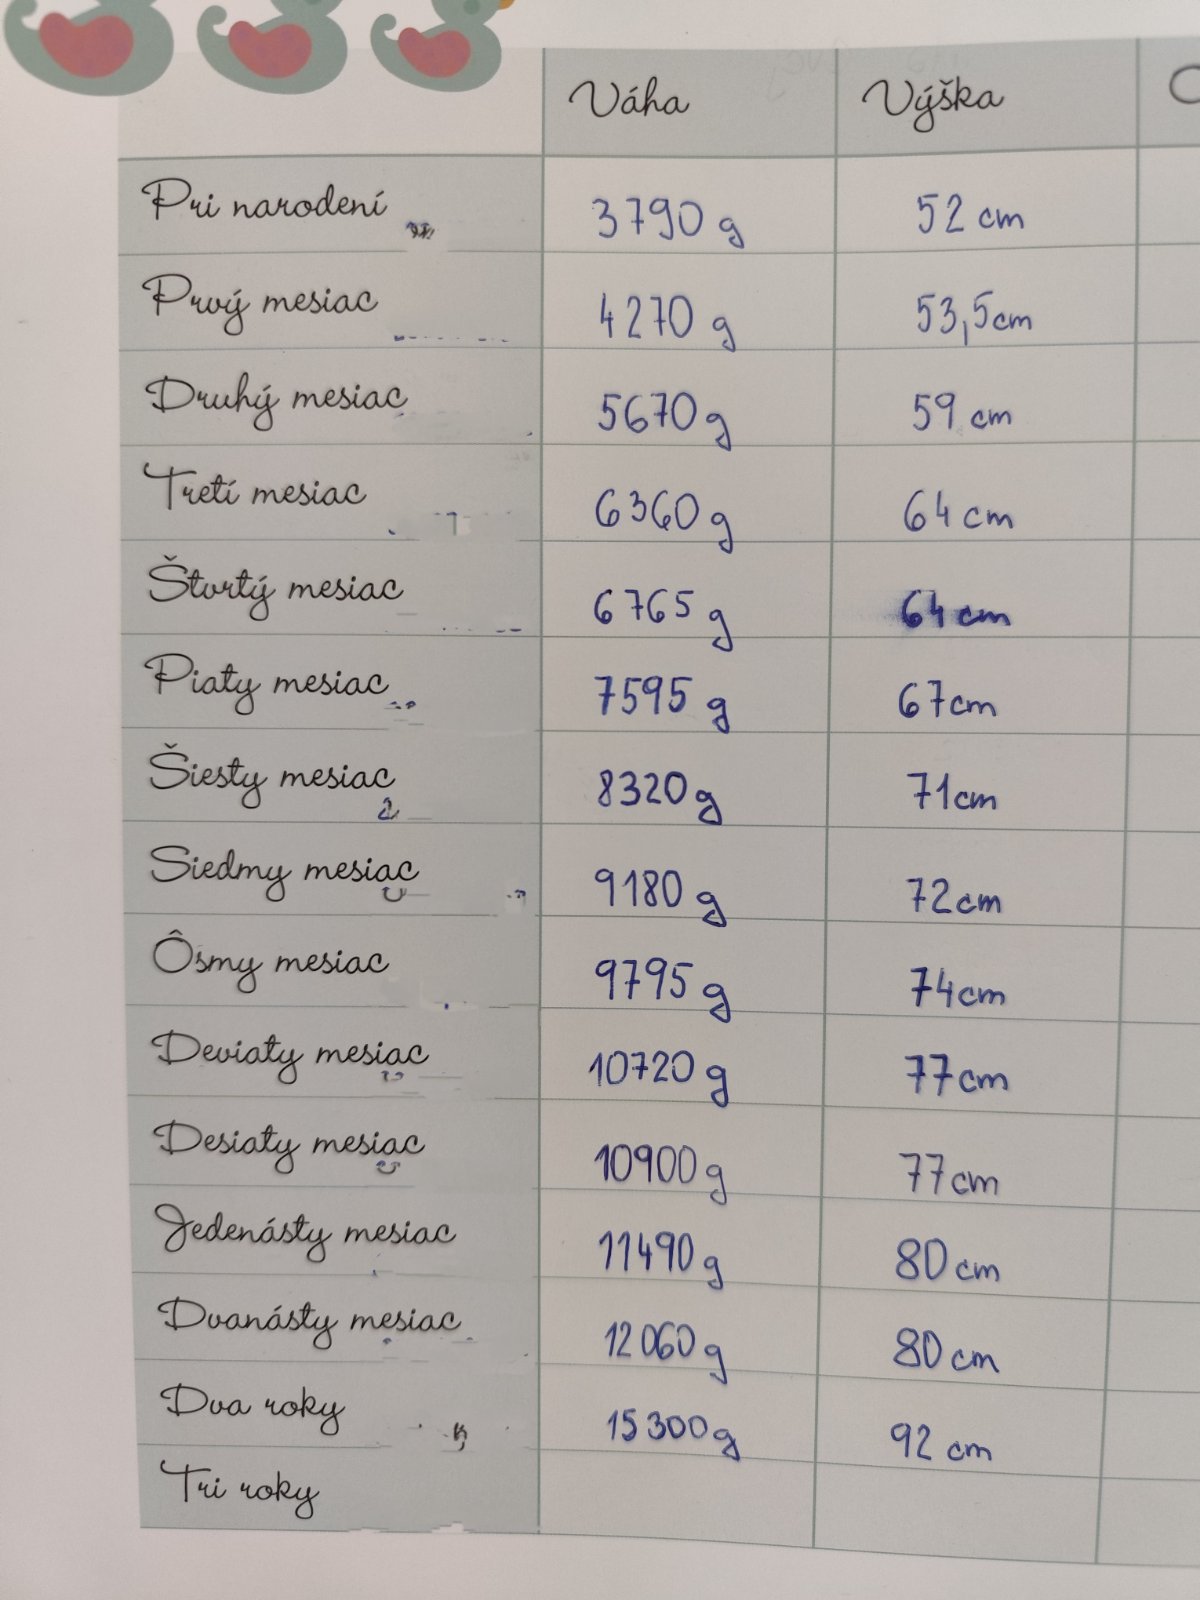 Váha Výška
Pri narodení 3790 g 52 cm
Prvý mesiac 4270 g 53,5cm
Druhý mesiac 5670 g 59 cm
Tretí mesiac 6360 g 64 cm
Štvrtý mesiac 6765 g 64 cm
Piaty mesiac 7595 g 67cm
Šiesty mesiac 8320 g 71cm
Siedmy mesiac 9180 g 72cm
Ôsmy mesiac 9795 g 74cm
Deviaty mesiac 10720 g 77cm
Desiaty mesiac 10900 g 77cm
Jedenásty mesiac 11490 g 80 cm
Dvanásty mesiac 12060 g 80 cm
Dva roky 15300g 92 cm
Tri roky